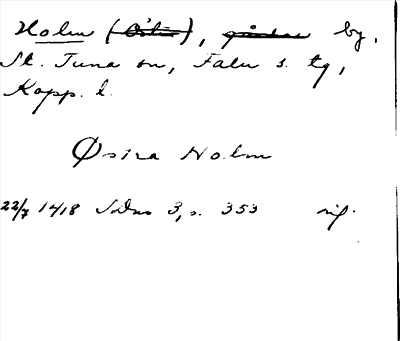 Holm (Östra), gårdar by,
St. Tuna sn, Falu s. tg,
Kopp. l.
Østra Holm
22/7 1418 SDns 3, s. 353 rip.